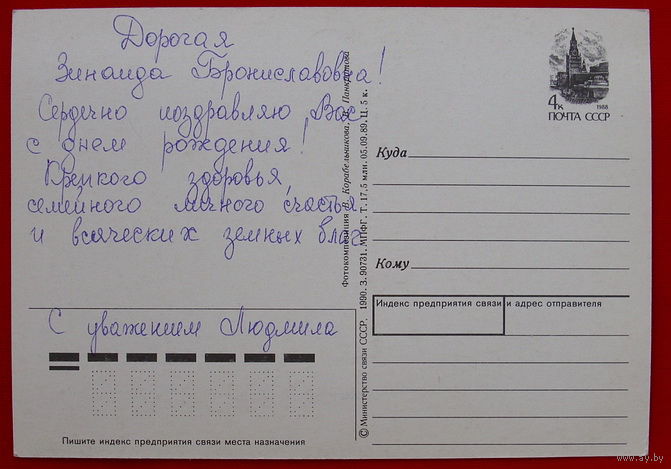 Дорогая
Зинаида Брониславовна!
Сердечно поздравляю Вас
с днем рождения!
Крепкого здоровья,
семейного личного счастья
и всяческих земных благ.
С уважением Людмила
Пишите индекс предприятия связи места назначения
© Министерство связи СССР. 1990. З. 90731. МПФГ. Т. 17,5 млн. 05.09.89. Ц. 5 к.
Фотокомпозиция В. Корабельникова, Панкратова
4к
1988
ПОЧТА СССР
Куда
Кому
Индекс предприятия связи и адрес отправителя
www.ay.by